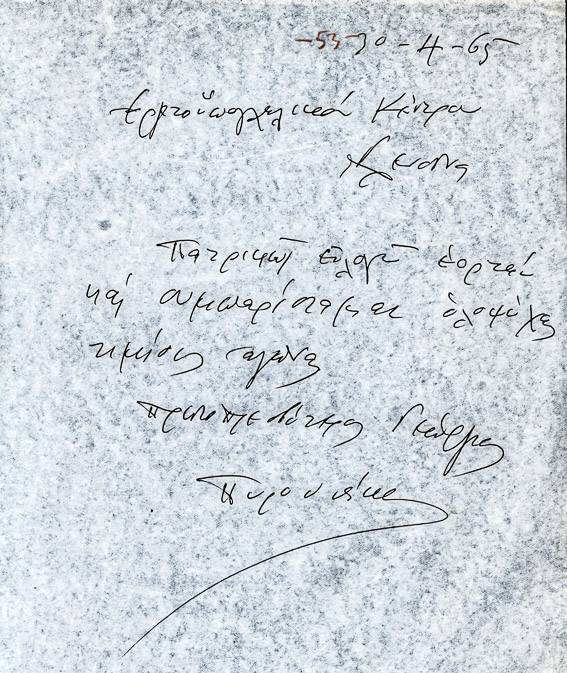 -53- 30-4-65
Ἐργατοϋπαλληλικόν Κέντρον
Πατρικῶς εὐλογῶ ἑορτάς
καί συμπαρίσταμαι ὁλοψύχως
τιμίους ἀγῶνας
Πρωτοπρεσβύτερος Γεώργιος
Πυρουνάκης